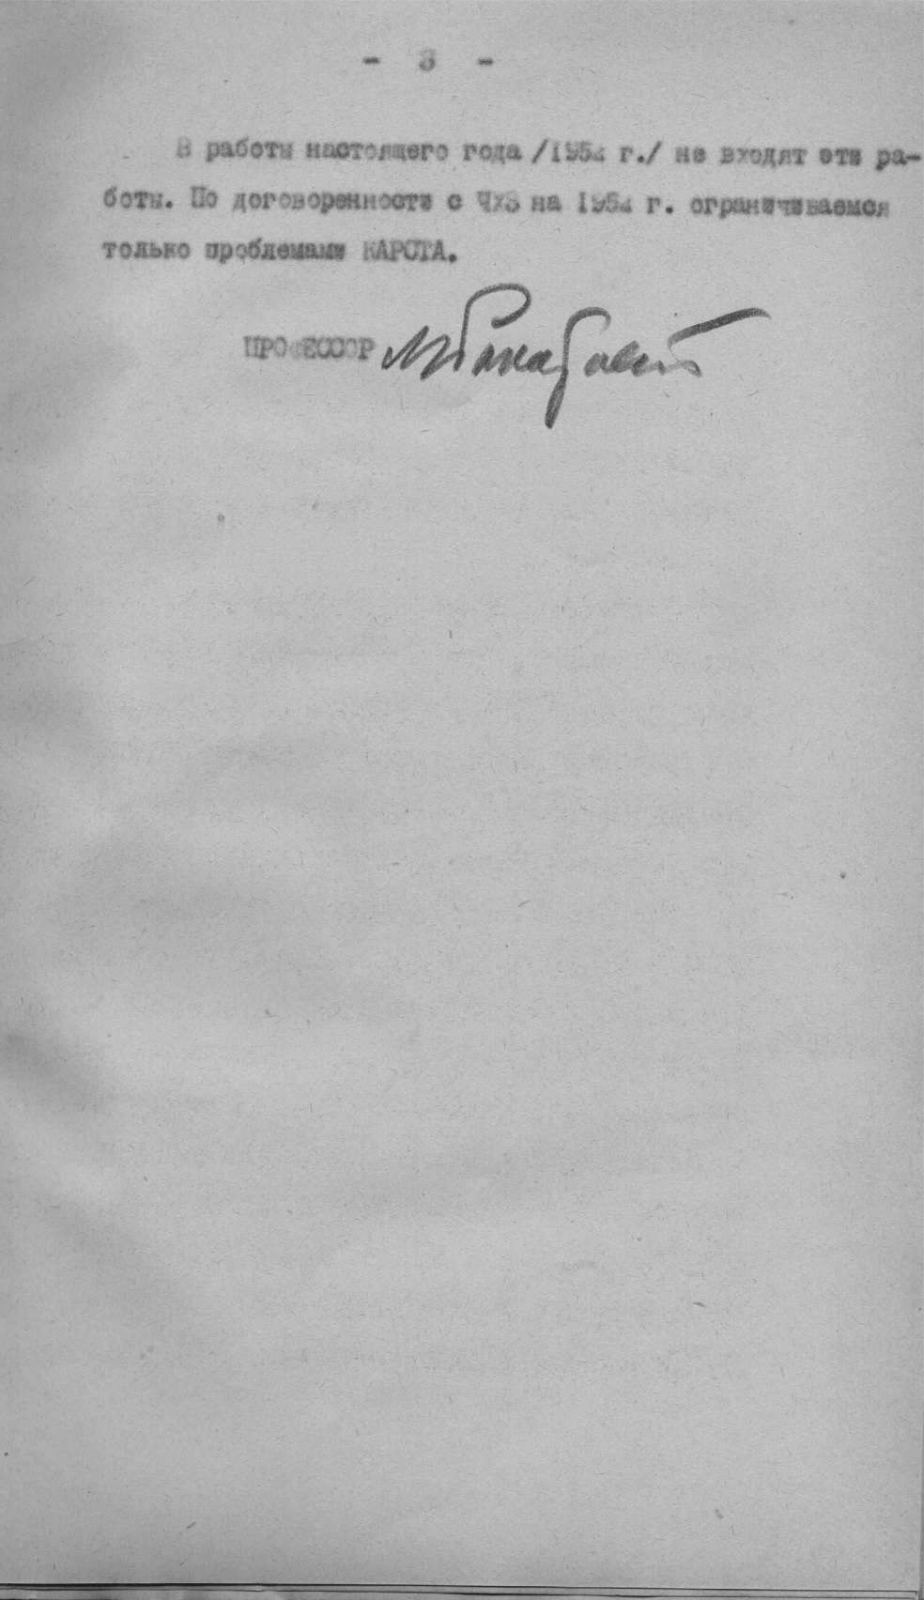 - 3 -
В работы настоящего года /1952 г./ не входят эти ра-
боты. По договоренности с ЧХЗ на 1952 г. ограничиваемся
только проблемами КАРСТА.
ПРОФЕССОР